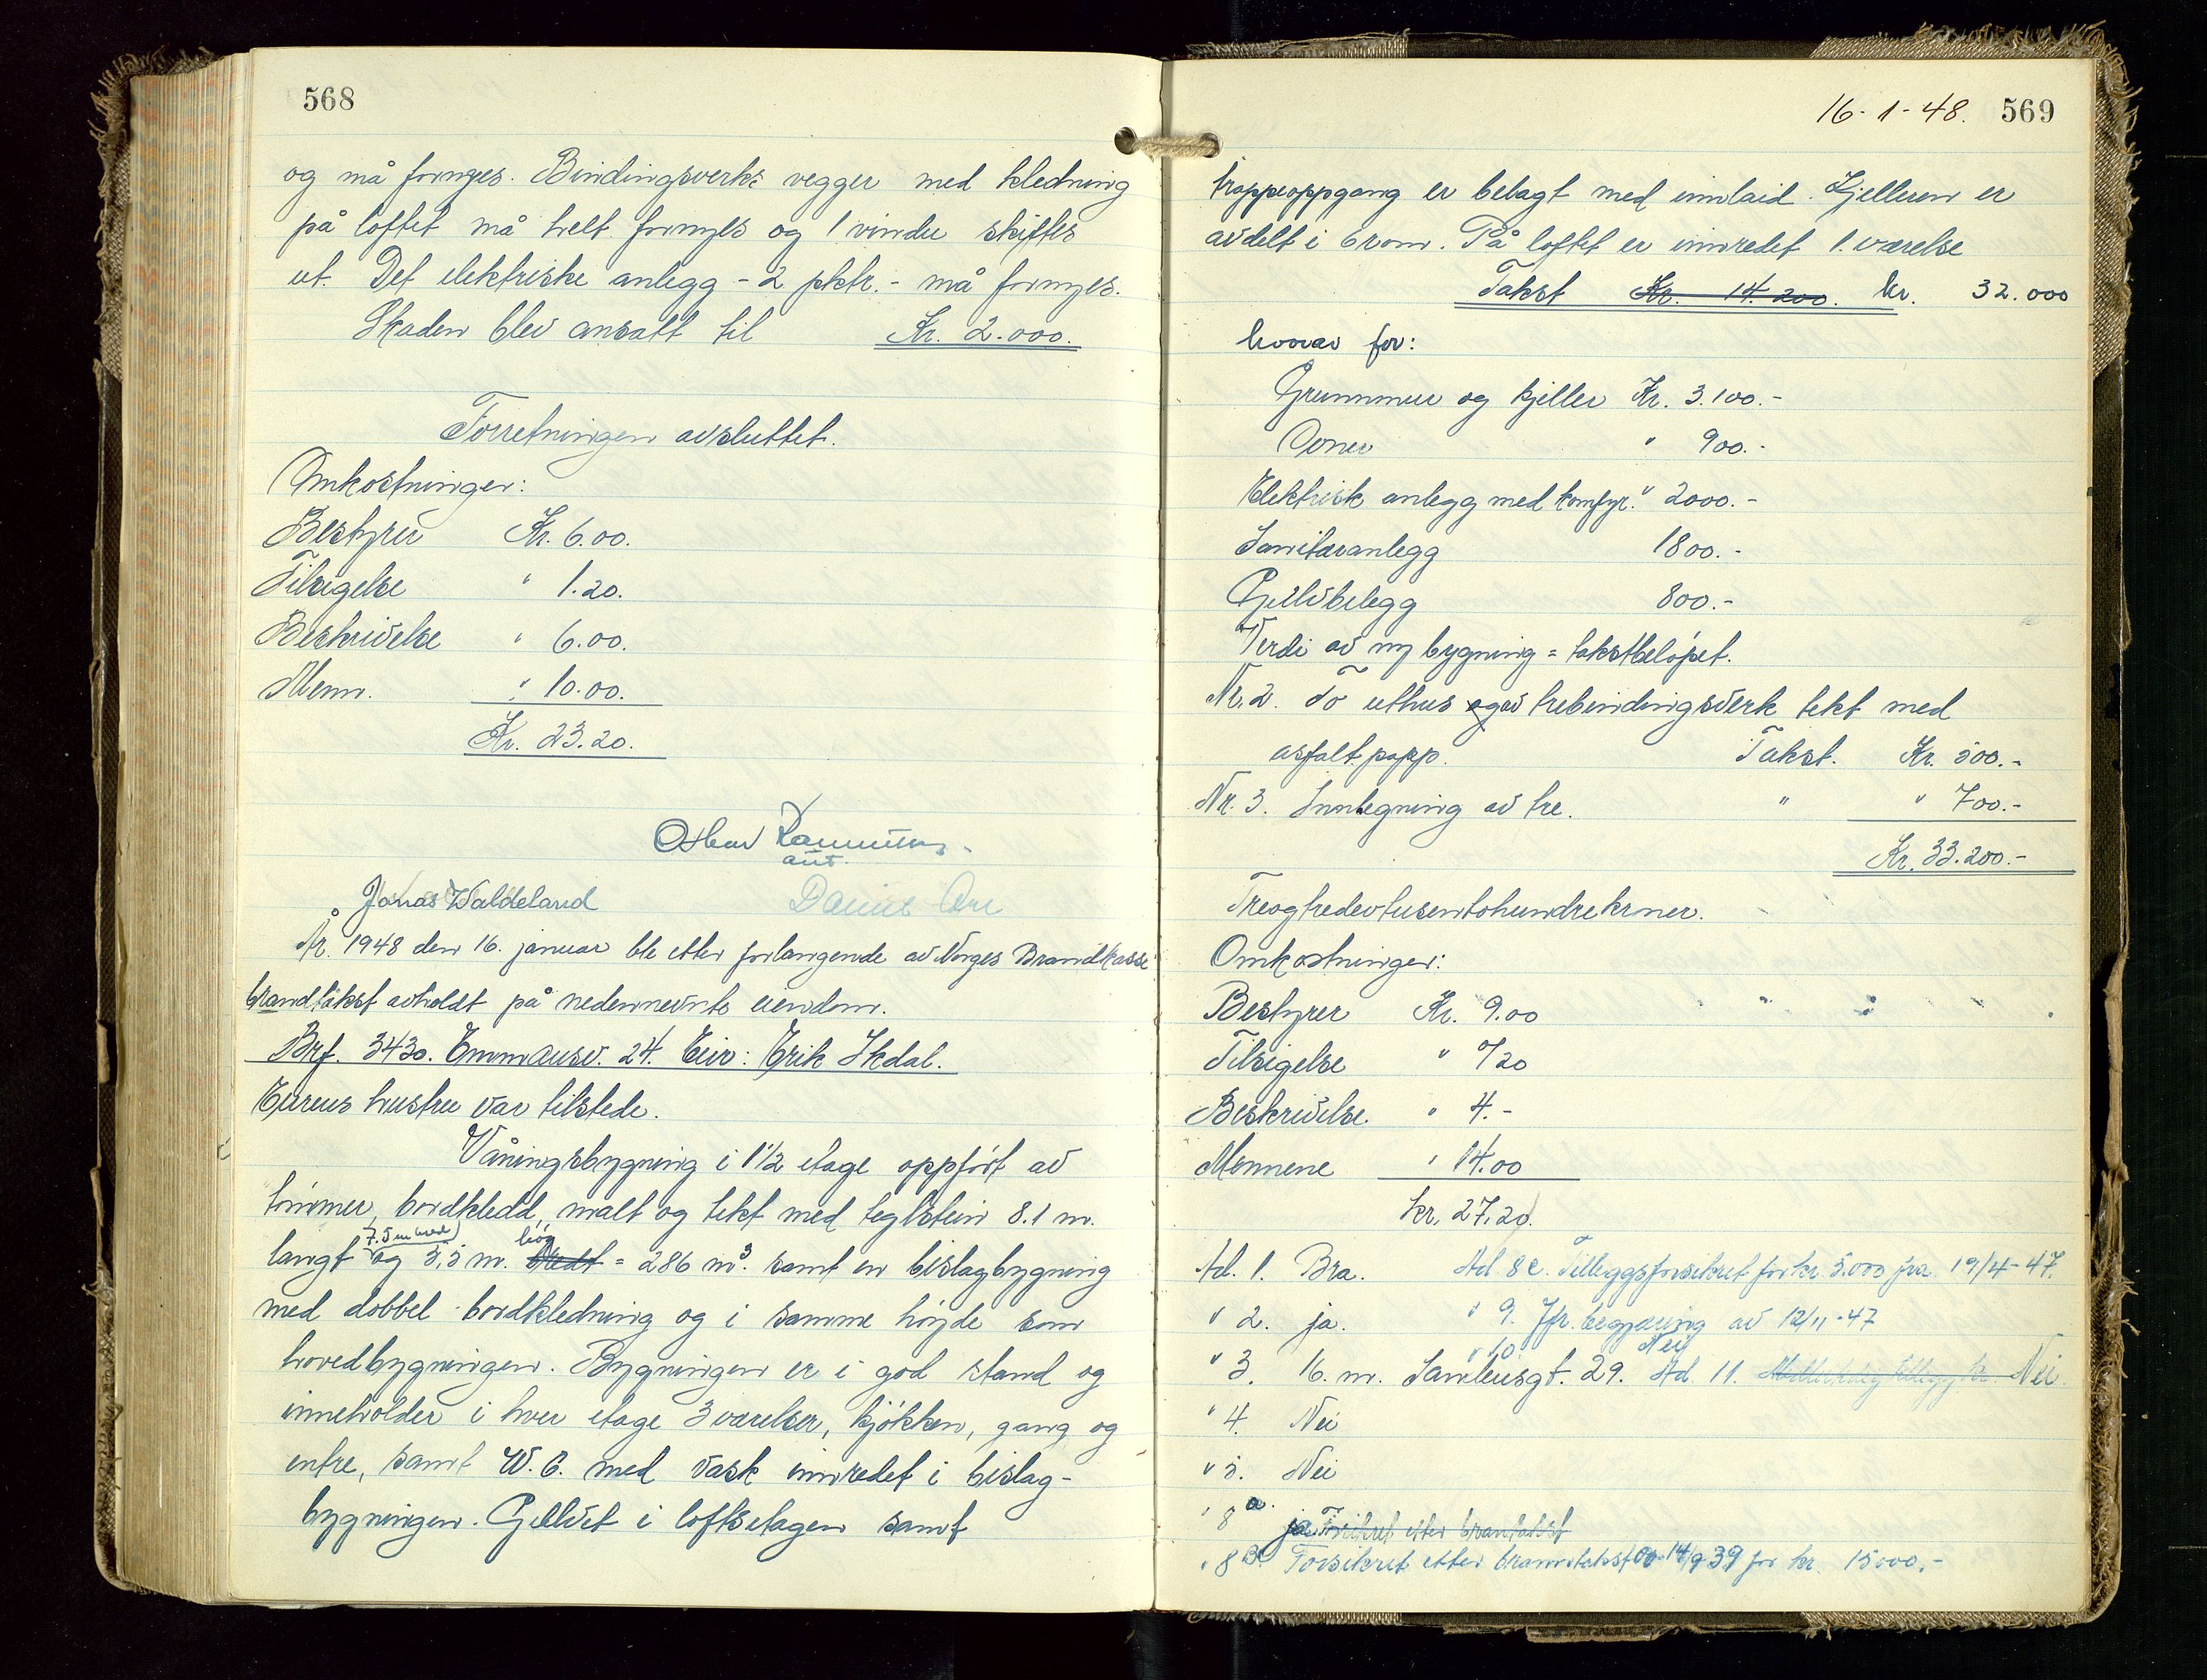 568
og må fornyes. Bindingsverks vegger med kledning
på loftet må helt fornyes og 1 vindu skiftes
ut. Det elektriske anlegg - 2 pktr. - må fornyes.
Skaden blev ansatt til Kr. 2.000.
Forretningen avsluttet.
Omkostninger:
Bestyrer Kr. 6.00.
Tilsigelse " 1.20.
Beskrivelse " 6.00.
Menn. " 10.00.
Kr. 23.20.
Oskar Rasmussen
ass.
Jonas Waldeland Daniel
År. 1948 den 16. januar ble etter forlangende av Norges Brandkasse
brandtakst avholdt på nedennevnte eiendom.
Brf. 3430. Emmausv. 24. Eier: Erik Ikdal.
Eierens hustru var tilstede.
Våningsbygning i 1 1/2 etage oppført av
tømmer, bordkledd, malt og tekt med teglstein 8.1 m.
langt 7.5 m bred og 5,5 m. bredt høg = 286 m³. samt en bislagbygning
med dobbel bordkledning og i samme høyde som
hovedbygningen. Bygningen er i god stand og
inneholder i hver etage 3 værelser, kjøkken, gang og
entre, samt W.C. med vask innredet i bislag-
bygningen. Gulvet i loftsetagen samt
16-1-48. 569
trappeoppgang er belagt med innlaid. Kjelleren er
avdelt i 6 rom. På loftet er innredet 1. værelse
Takst Kr. 14.200. kr. 32.000
hvorav for:
Grunnmur og kjeller Kr. 3.100.-
Ovner " 900.-
Elektrisk anlegg med komfyr. " 2000.-
Sanitæranlegg 1800.-
Gulvbelegg 800.-
Verdi av ny bygning = takstbeløpet.
Nr. 2. To uthus og av trebindingsverk tekt med
asfalt papp. Takst. Kr. 500.-
Nr. 3. Innhegning av tre. " " 700.-
Kr. 33.200.-
Treogtredevtusentohundrekroner.
Omkostninger:
Bestyrer Kr. 9.00
Tilsigelse " 0/20
Beskrivelse. " 4.-
Mennene " 14.00
kr. 27.20.
Ad. 1. Bra. Ad 8c. Tilleggsforsikret for kr. 5.000 fra 19/4-47.
" 2. ja. " 9. Jfr. begjæring av 12/11-47
" 10 Nei
" 3. 16. m. Sandeusgt. 29. Ad. 11. Nei.
" 4. Nei
" 5. Nei
" 8 a. ja Forsikret etter branntakst
" 8 B. Forsikret etter branntakst av 14/9-39 for kr. 15000.-